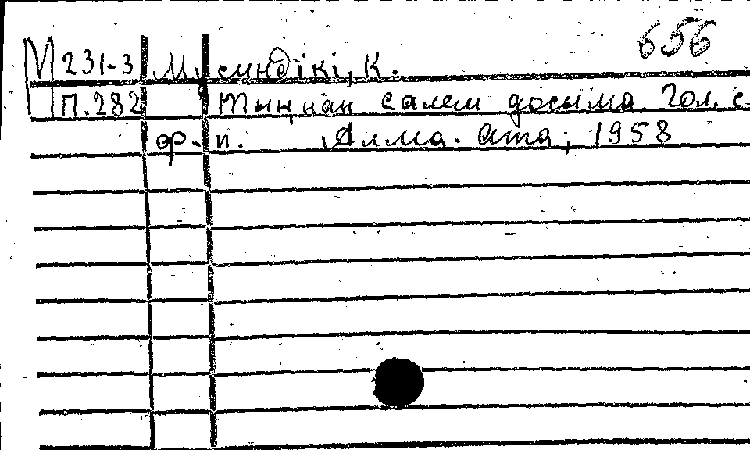 656
М 231-3 Мусиндікі, К.
П.282 Тыңнан сәлем досыма. Гол. с
ф-п. Алма-Ата, 1958